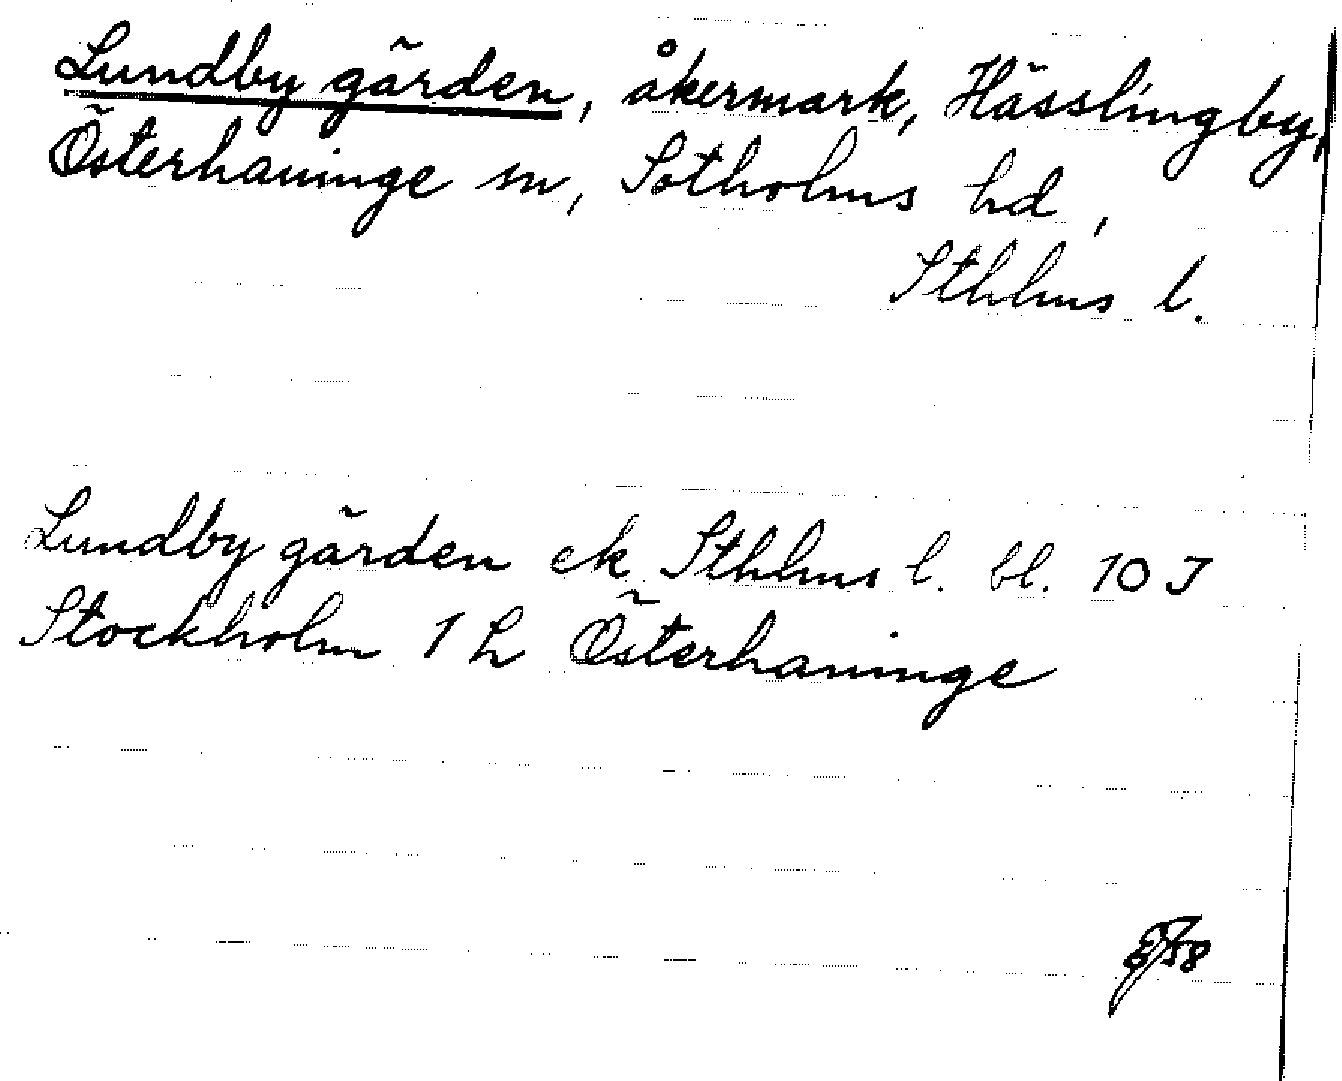 Lundby gärden, åkermark, Hässlingby,
Österhaninge sn, Sotholms hd,
Sthlms l.
Lundby gärden ek Sthlms l. bl. 10 I
Stockholm 1 h Österhaninge